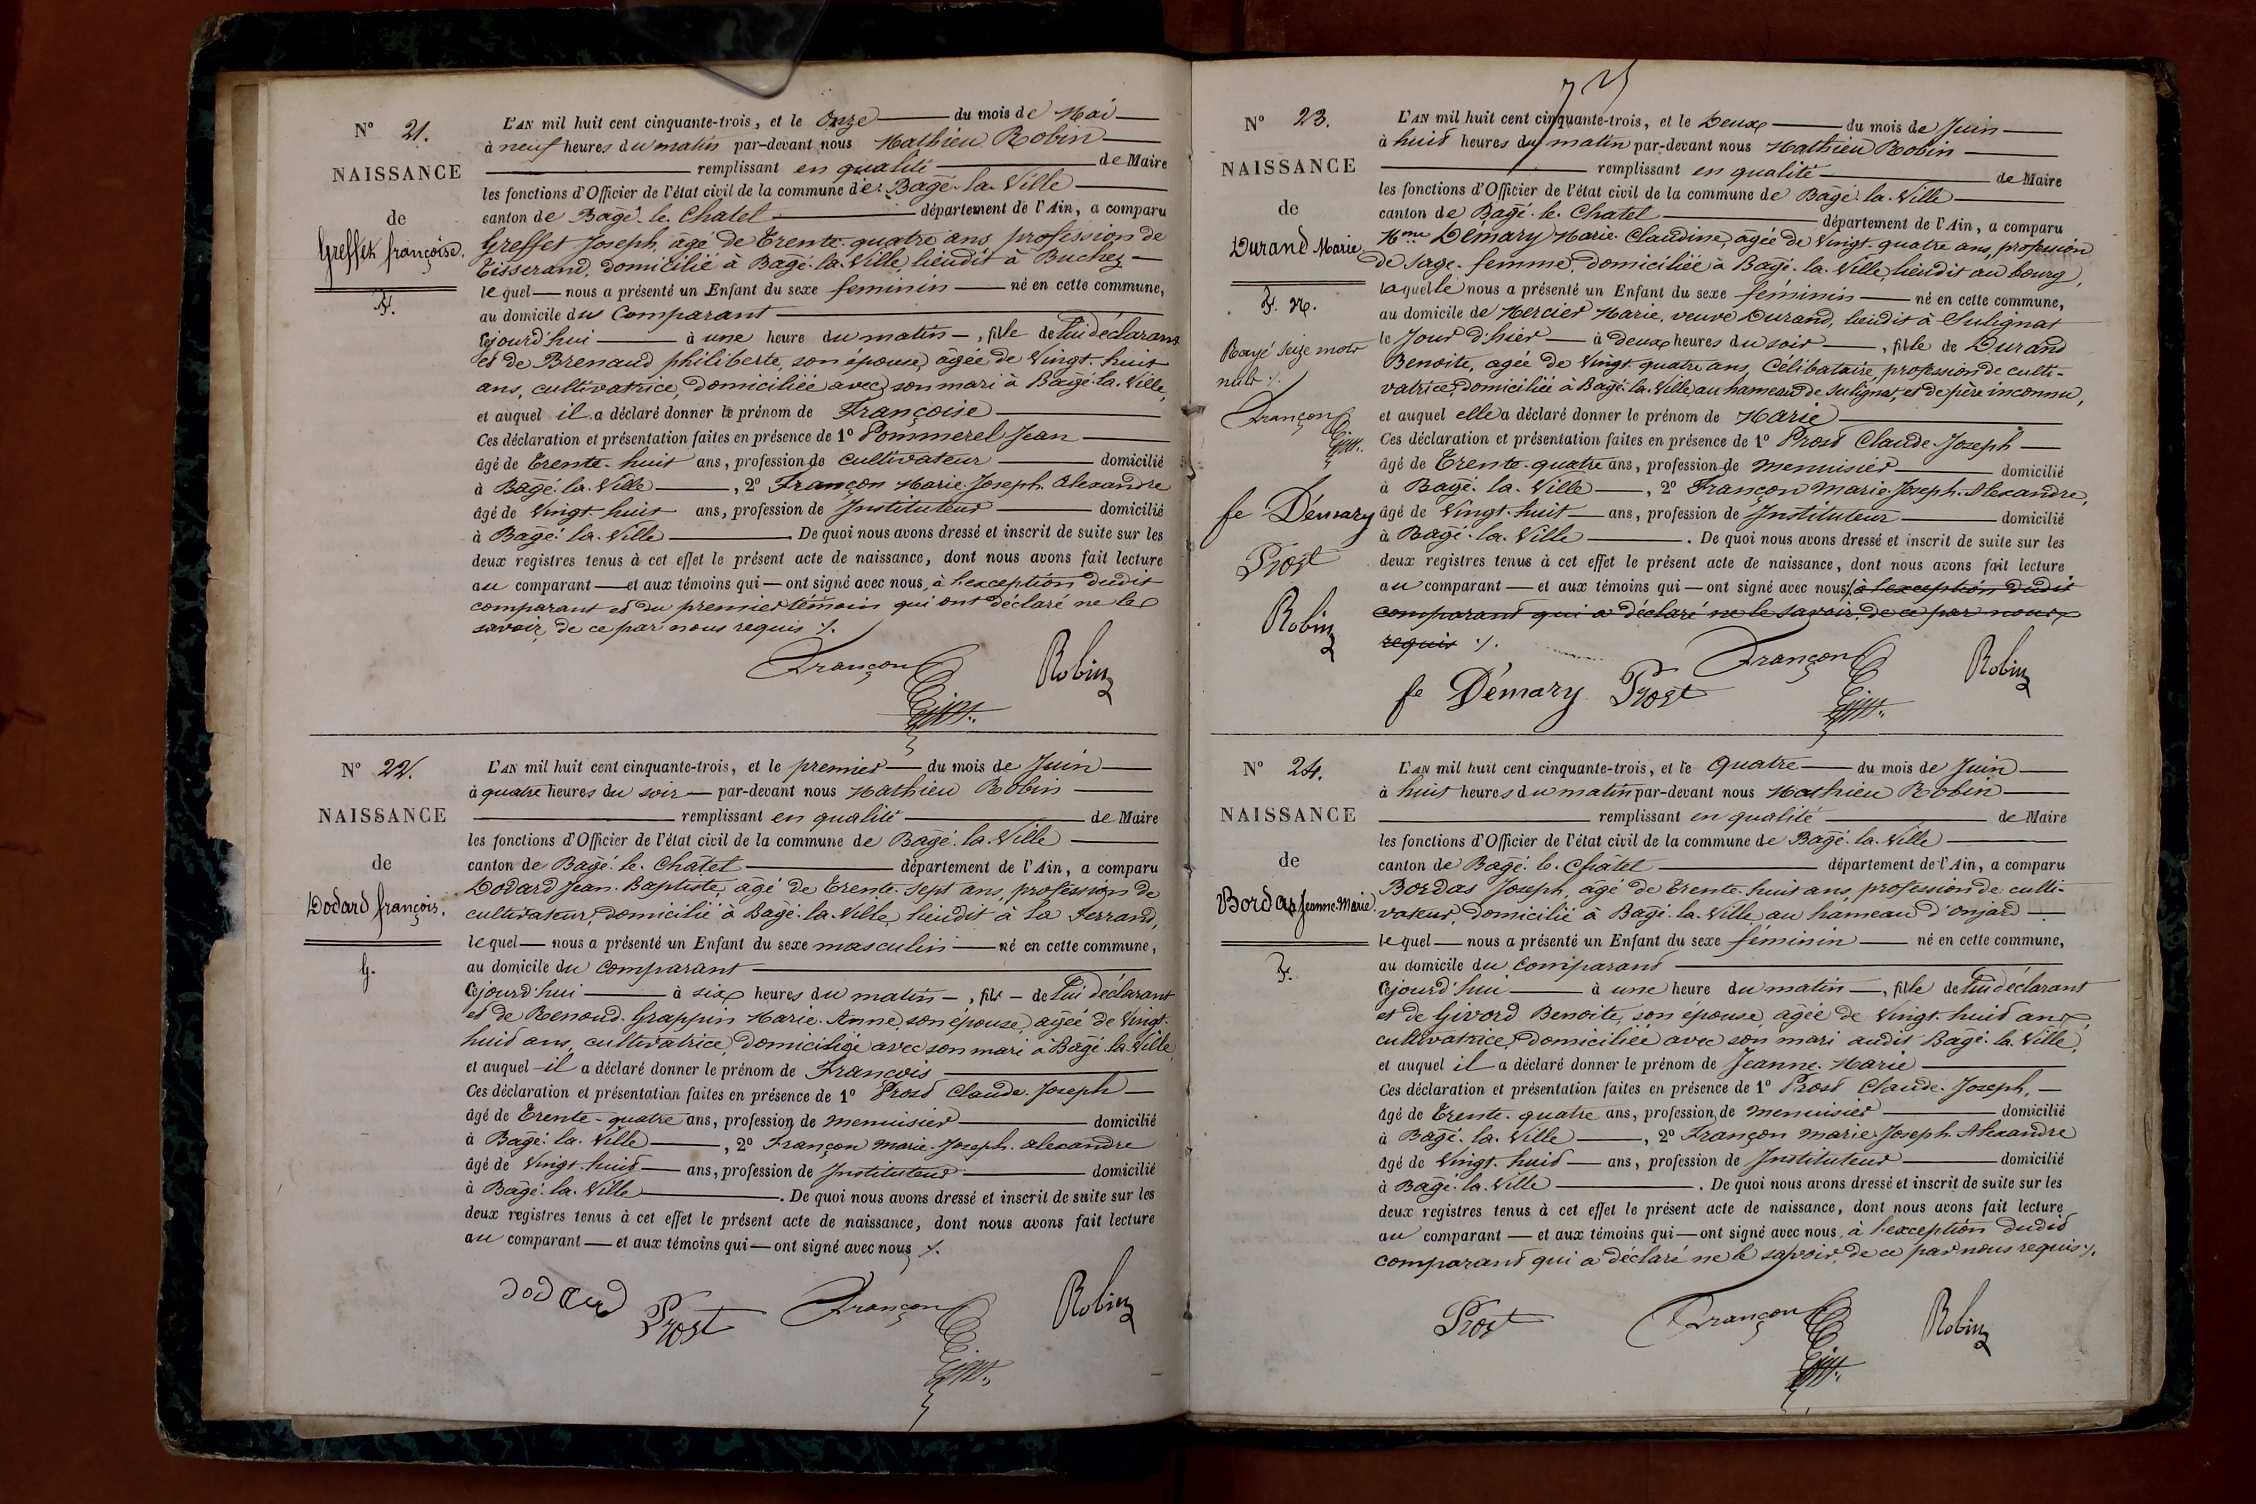 N° 21.
NAISSANCE
de
Greffet françoise.
F.
L'AN mil huit cent cinquante-trois, et le Onze du mois de Mai
à neuf heures du matin par-devant nous Mathieu Robin
remplissant en qualité de Maire
les fonctions d'Officier de l'état civil de la commune de Bagé-la-Ville
canton de Bagé-le-Chatel département de l'Ain, a comparu
Greffet Joseph, âgé de Trente-quatre ans, profession de
Tisserand, domicilié à Bagé-la-Ville, lieudit à Buchez
lequel nous a présenté un Enfant du sexe feminin né en cette commune,
au domicile du Comparant
Cejourd'hui à une heure du matin, fille de lui déclarant
et de Brenaud philiberte, son épouse, agée de Vingt-huit
ans, cultivatrice, domiciliée avec son mari à Bagé-la-Ville,
et auquel il a déclaré donner le prénom de Françoise
Ces déclaration et présentation faites en présence de 1° Pommerel Jean
âgé de Trente-huit ans, profession de cultivateur domicilié
à Bagé-la-Ville, 2° Françon Marie-Joseph-Alexandre
âgé de Vingt-huit ans, profession de Instituteur domicilié
à Bagé-la-Ville. De quoi nous avons dressé et inscrit de suite sur les
deux registres tenus à cet effet le présent acte de naissance, dont nous avons fait lecture
au comparant et aux témoins qui ont signé avec nous, à l'exception dudit
comparant et du premier témoin qui ont déclaré ne le
savoir, de ce par nous requis ./.
Françon Robin
N° 22.
NAISSANCE
de
Dodard françois.
G.
L'AN mil huit cent cinquante-trois, et le premier du mois de Juin
à quatre heures du soir par-devant nous Mathieu Robin
remplissant en qualité de Maire
les fonctions d'Officier de l'état civil de la commune de Bagé-la-Ville
canton de Bagé-le-Chatel département de l'Ain, a comparu
Dodard Jean-Baptiste, âgé de Trente-sept ans, profession de
cultivateur, domicilié à Bagé-la-Ville, lieudit à la Ferrand,
lequel nous a présenté un Enfant du sexe masculin né en cette commune,
au domicile du comparant
Cejourd'hui à six heures du matin, fils de lui déclarant
et de Renoud-Grappin Marie-Anne, son épouse, agée de Vingt-
huit ans, cultivatrice, domiciliée avec son mari à Bagé-la-Ville,
et auquel il a déclaré donner le prénom de François
Ces déclaration et présentation faites en présence de 1° Prost Claude-Joseph
âgé de Trente-quatre ans, profession de menuisier domicilié
à Bagé-la-Ville, 2° Françon Marie-Joseph-Alexandre
âgé de Vingt-huit ans, profession de Instituteur domicilié
à Bagé-la-Ville. De quoi nous avons dressé et inscrit de suite sur les
deux registres tenus à cet effet le présent acte de naissance, dont nous avons fait lecture
au comparant et aux témoins qui ont signé avec nous ./.
dodard Prost Françon Robin
N° 23.
NAISSANCE
de
Durand Marie
F. N.
Rayé seize mots
nuls ./.
Françon
fe Démary
Prost
Robin
L'AN mil huit cent cinquante-trois, et le Deux du mois de Juin
à huit heures du matin par-devant nous Mathieu Robin
remplissant en qualité de Maire
les fonctions d'Officier de l'état civil de la commune de Bagé-la-Ville
canton de Bagé-le-Chatel département de l'Ain, a comparu
Mme Démary Marie-Claudine, agée de Vingt-quatre ans, profession
de Sage-femme, domiciliée à Bagé-la-Ville, lieudit au bourg,
laquelle nous a présenté un Enfant du sexe féminin né en cette commune,
au domicile de Mercier Marie, veuve Durand, lieudit à Sulignat
le Jour d'hier à Deux heures du soir, fille de Durand
Benoite, agée de Vingt-quatre ans, Célibataire, profession de culti-
vatrice, domiciliée à Bagé-la-Ville, au hameau de Sulignat, et de père inconnu,
et auquel elle a déclaré donner le prénom de Marie
Ces déclaration et présentation faites en présence de 1° Prost Claude-Joseph
âgé de Trente-quatre ans, profession de menuisier domicilié
à Bagé-la-Ville, 2° Françon Marie-Joseph-Alexandre,
âgé de Vingt-huit ans, profession de Instituteur domicilié
à Bagé-la-Ville. De quoi nous avons dressé et inscrit de suite sur les
deux registres tenus à cet effet le présent acte de naissance, dont nous avons fait lecture
au comparant et aux témoins qui ont signé avec nous, à l'exception dudit
comparant qui a déclaré ne le savoir, de ce par nous
requis ./.
fe Démary Prost Françon Robin
N° 24.
NAISSANCE
de
Bordas Jeanne-Marie
F.
L'AN mil huit cent cinquante-trois, et le Quatre du mois de Juin
à huit heures du matin par-devant nous Mathieu Robin
remplissant en qualité de Maire
les fonctions d'Officier de l'état civil de la commune de Bagé-la-Ville
canton de Bagé-le-Châtel département de l'Ain, a comparu
Bordas Joseph, âgé de Trente-huit ans, profession de culti-
vateur, domicilié à Bagé-la-Ville au hameau d'onjard
lequel nous a présenté un Enfant du sexe féminin né en cette commune,
au domicile du comparant
Cejourd'hui à une heure du matin, fille de lui déclarant
et de Givord Benoite, son épouse, agée de Vingt-huit ans,
cultivatrice, domiciliée avec son mari audit Bagé-la-Ville,
et auquel il a déclaré donner le prénom de Jeanne-Marie
Ces déclaration et présentation faites en présence de 1° Prost Claude-Joseph,
âgé de Trente-quatre ans, profession de menuisier domicilié
à Bagé-la-Ville, 2° Françon Marie-Joseph-Alexandre
âgé de Vingt-huit ans, profession de Instituteur domicilié
à Bagé-la-Ville. De quoi nous avons dressé et inscrit de suite sur les
deux registres tenus à cet effet le présent acte de naissance, dont nous avons fait lecture
au comparant et aux témoins qui ont signé avec nous, à l'exception dudit
comparant qui a déclaré ne le savoir, de ce par nous requis ./.
Prost Françon Robin